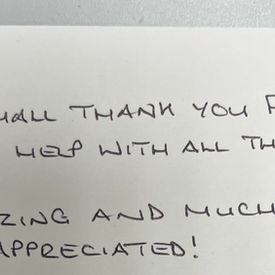 MALL THANK YOU F
HELP WITH ALL TH
ZING AND MUCH
APPRECIATED!